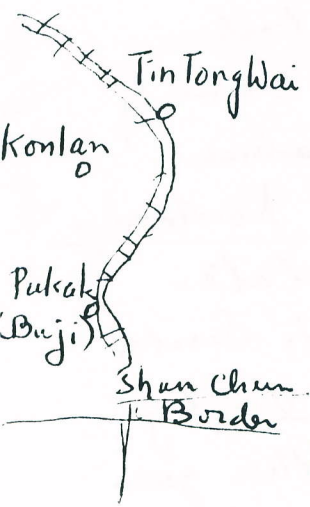 Tin Tong Wai
Konlan
Pukak
(Buji)
Shun Chun
Border